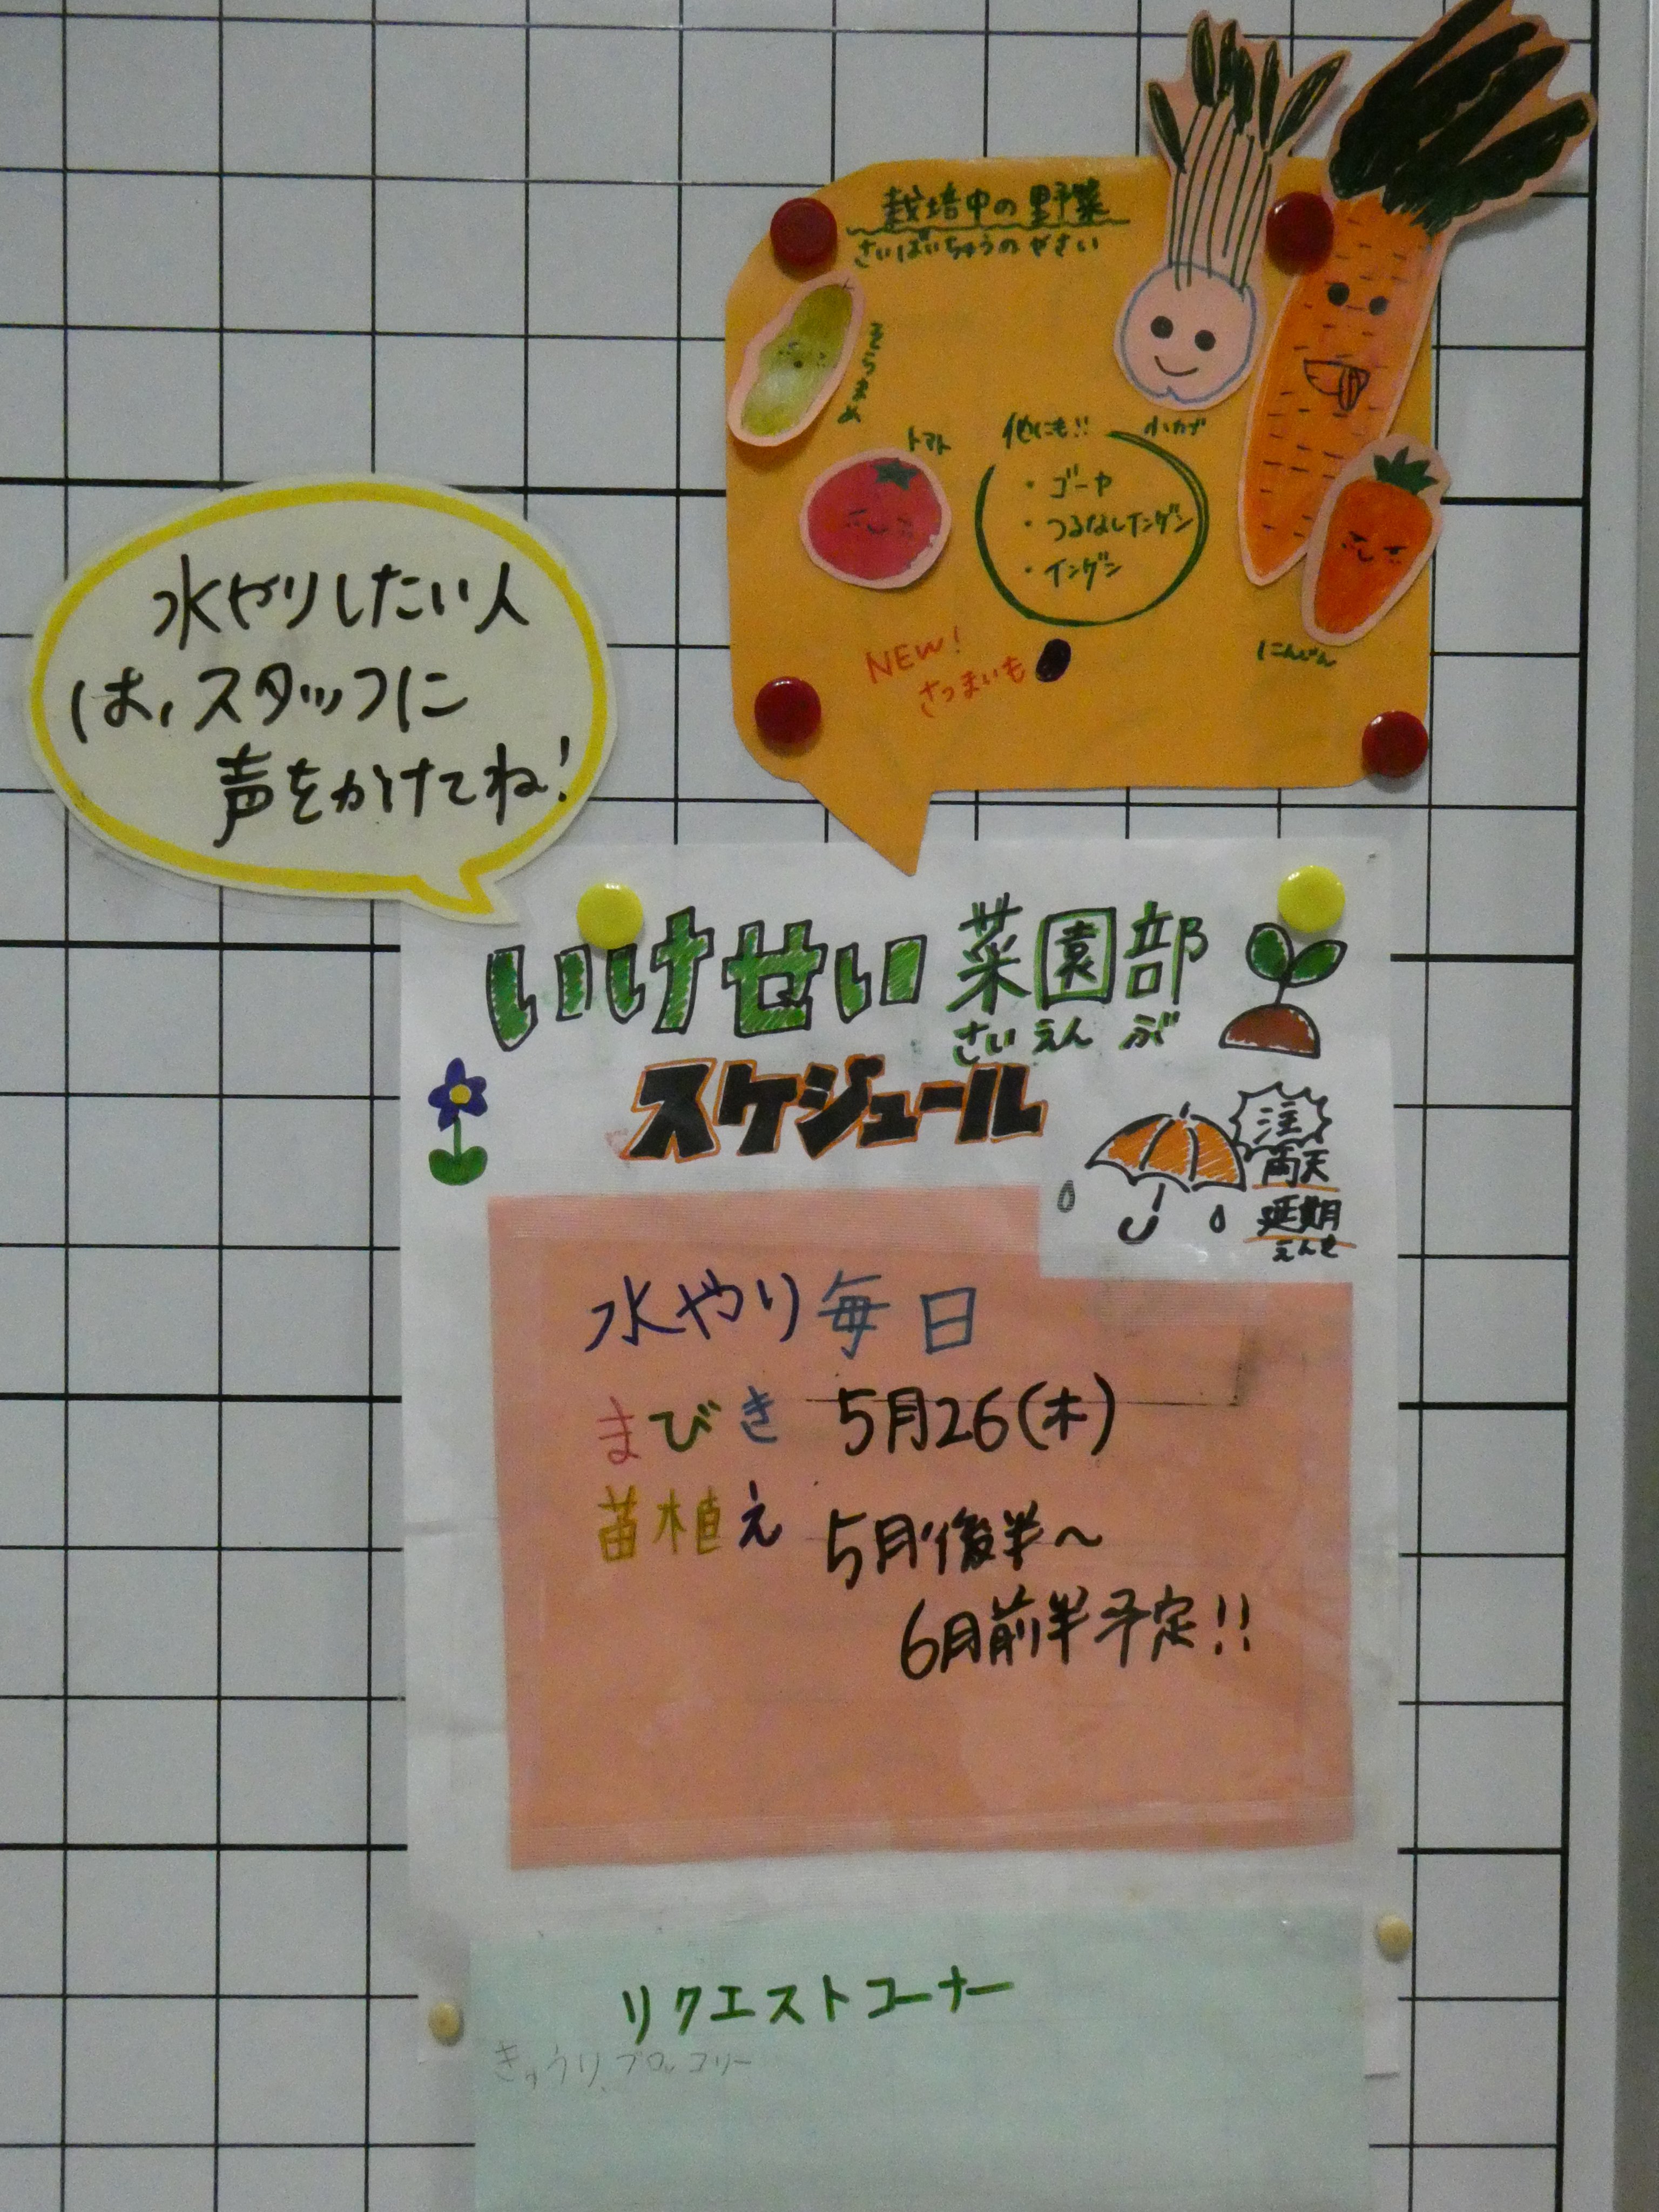 栽培中の野菜
さいばいちゅうのやさい
そらまめ
トマト
他にも!!
小カブ
・ゴーヤ
・つるなしインゲン
・インゲン
にんじん
NEW!
さつまいも
水やりしたい人
は、スタッフに
声をかけてね!
いけせい菜園部
さいえんぶ
スケジュール
注
雨天
延期
えんき
水やり毎日
まびき 5月26(木)
苗植え 5月後半～
6月前半予定!!
リクエストコーナー
きゅうり、ブロッコリー